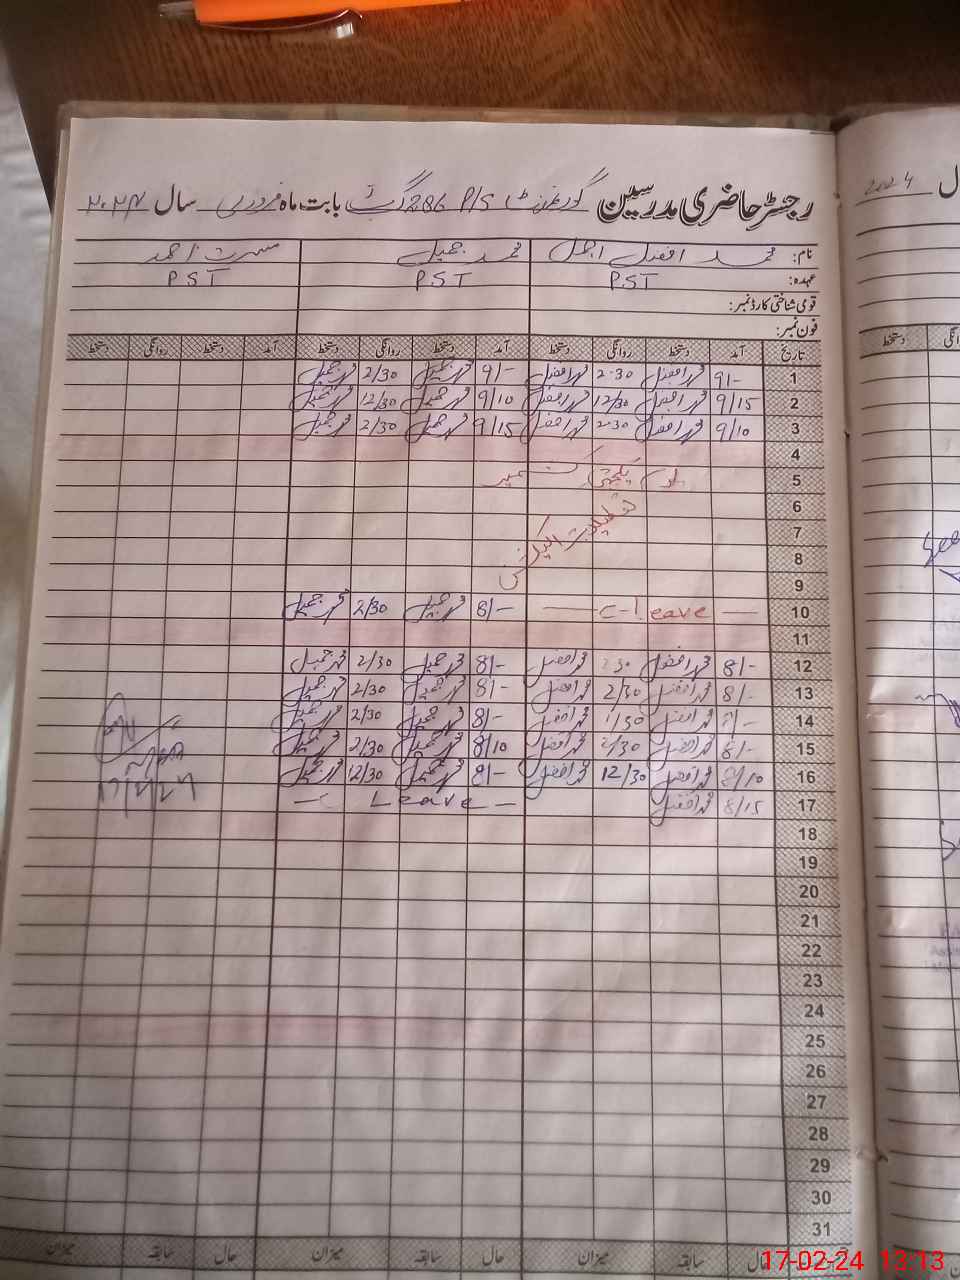 رجسٹر حاضری مدرسین گورنمنٹ P/S 286 گ ب بابت ماہ فروری سال ۲۰۲۴
نام: محمد افضل اجمل محمد جمیل مسرت احمد
عہدہ: PST PST PST
قومی شناختی کارڈ نمبر:
فون نمبر:
تاریخ آمد دستخط روانگی دستخط آمد دستخط روانگی دستخط آمد دستخط روانگی دستخط
1 9/- محمد افضل 2-30 محمد افضل 9/- محمد جمیل 2/30 محمد جمیل
2 9/15 محمد افضل 12/30 محمد افضل 9/10 محمد جمیل 12/30 محمد جمیل
3 9/10 محمد افضل 2-30 محمد افضل 9/15 محمد جمیل 2/30 محمد جمیل
4
5 یوم یکجہتی کشمیر
6
7 تعطیلات الیکشن
8
9
10 — C-leave — 8/- محمد جمیل 2/30 محمد جمیل
11
12 8/- محمد افضل 2/30 محمد افضل 8/- محمد جمیل 2/30 محمد جمیل
13 8/- محمد افضل 2/30 محمد افضل 8/- محمد جمیل 2/30 محمد جمیل
14 8/- محمد افضل محمد افضل 8/- محمد جمیل 2/30 محمد جمیل
15 8/- محمد افضل 2/30 محمد افضل 8/10 محمد جمیل 2/30 محمد جمیل
16 8/10 محمد افضل 12/30 محمد افضل 8/- محمد جمیل 12/30 محمد جمیل
17 8/15 محمد افضل — C Leave —
18
19
20
21
22
23
24
25
26
27
28
29
30
31
حال سابقہ میزان حال سابقہ میزان حال سابقہ میزان
ل 2024
17-02-24 13:13